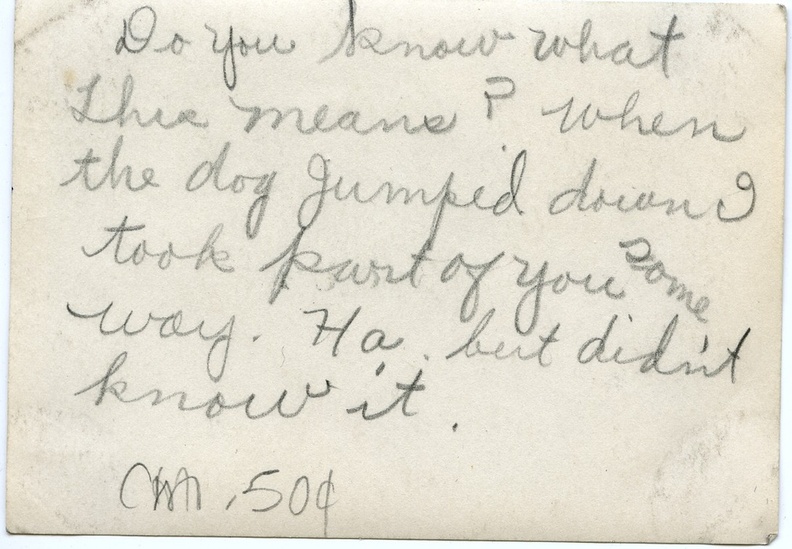 Do you know what
this means? When
the dog Jumped down I
took part of you some
way. Ha. but didn't
know it.
.50¢